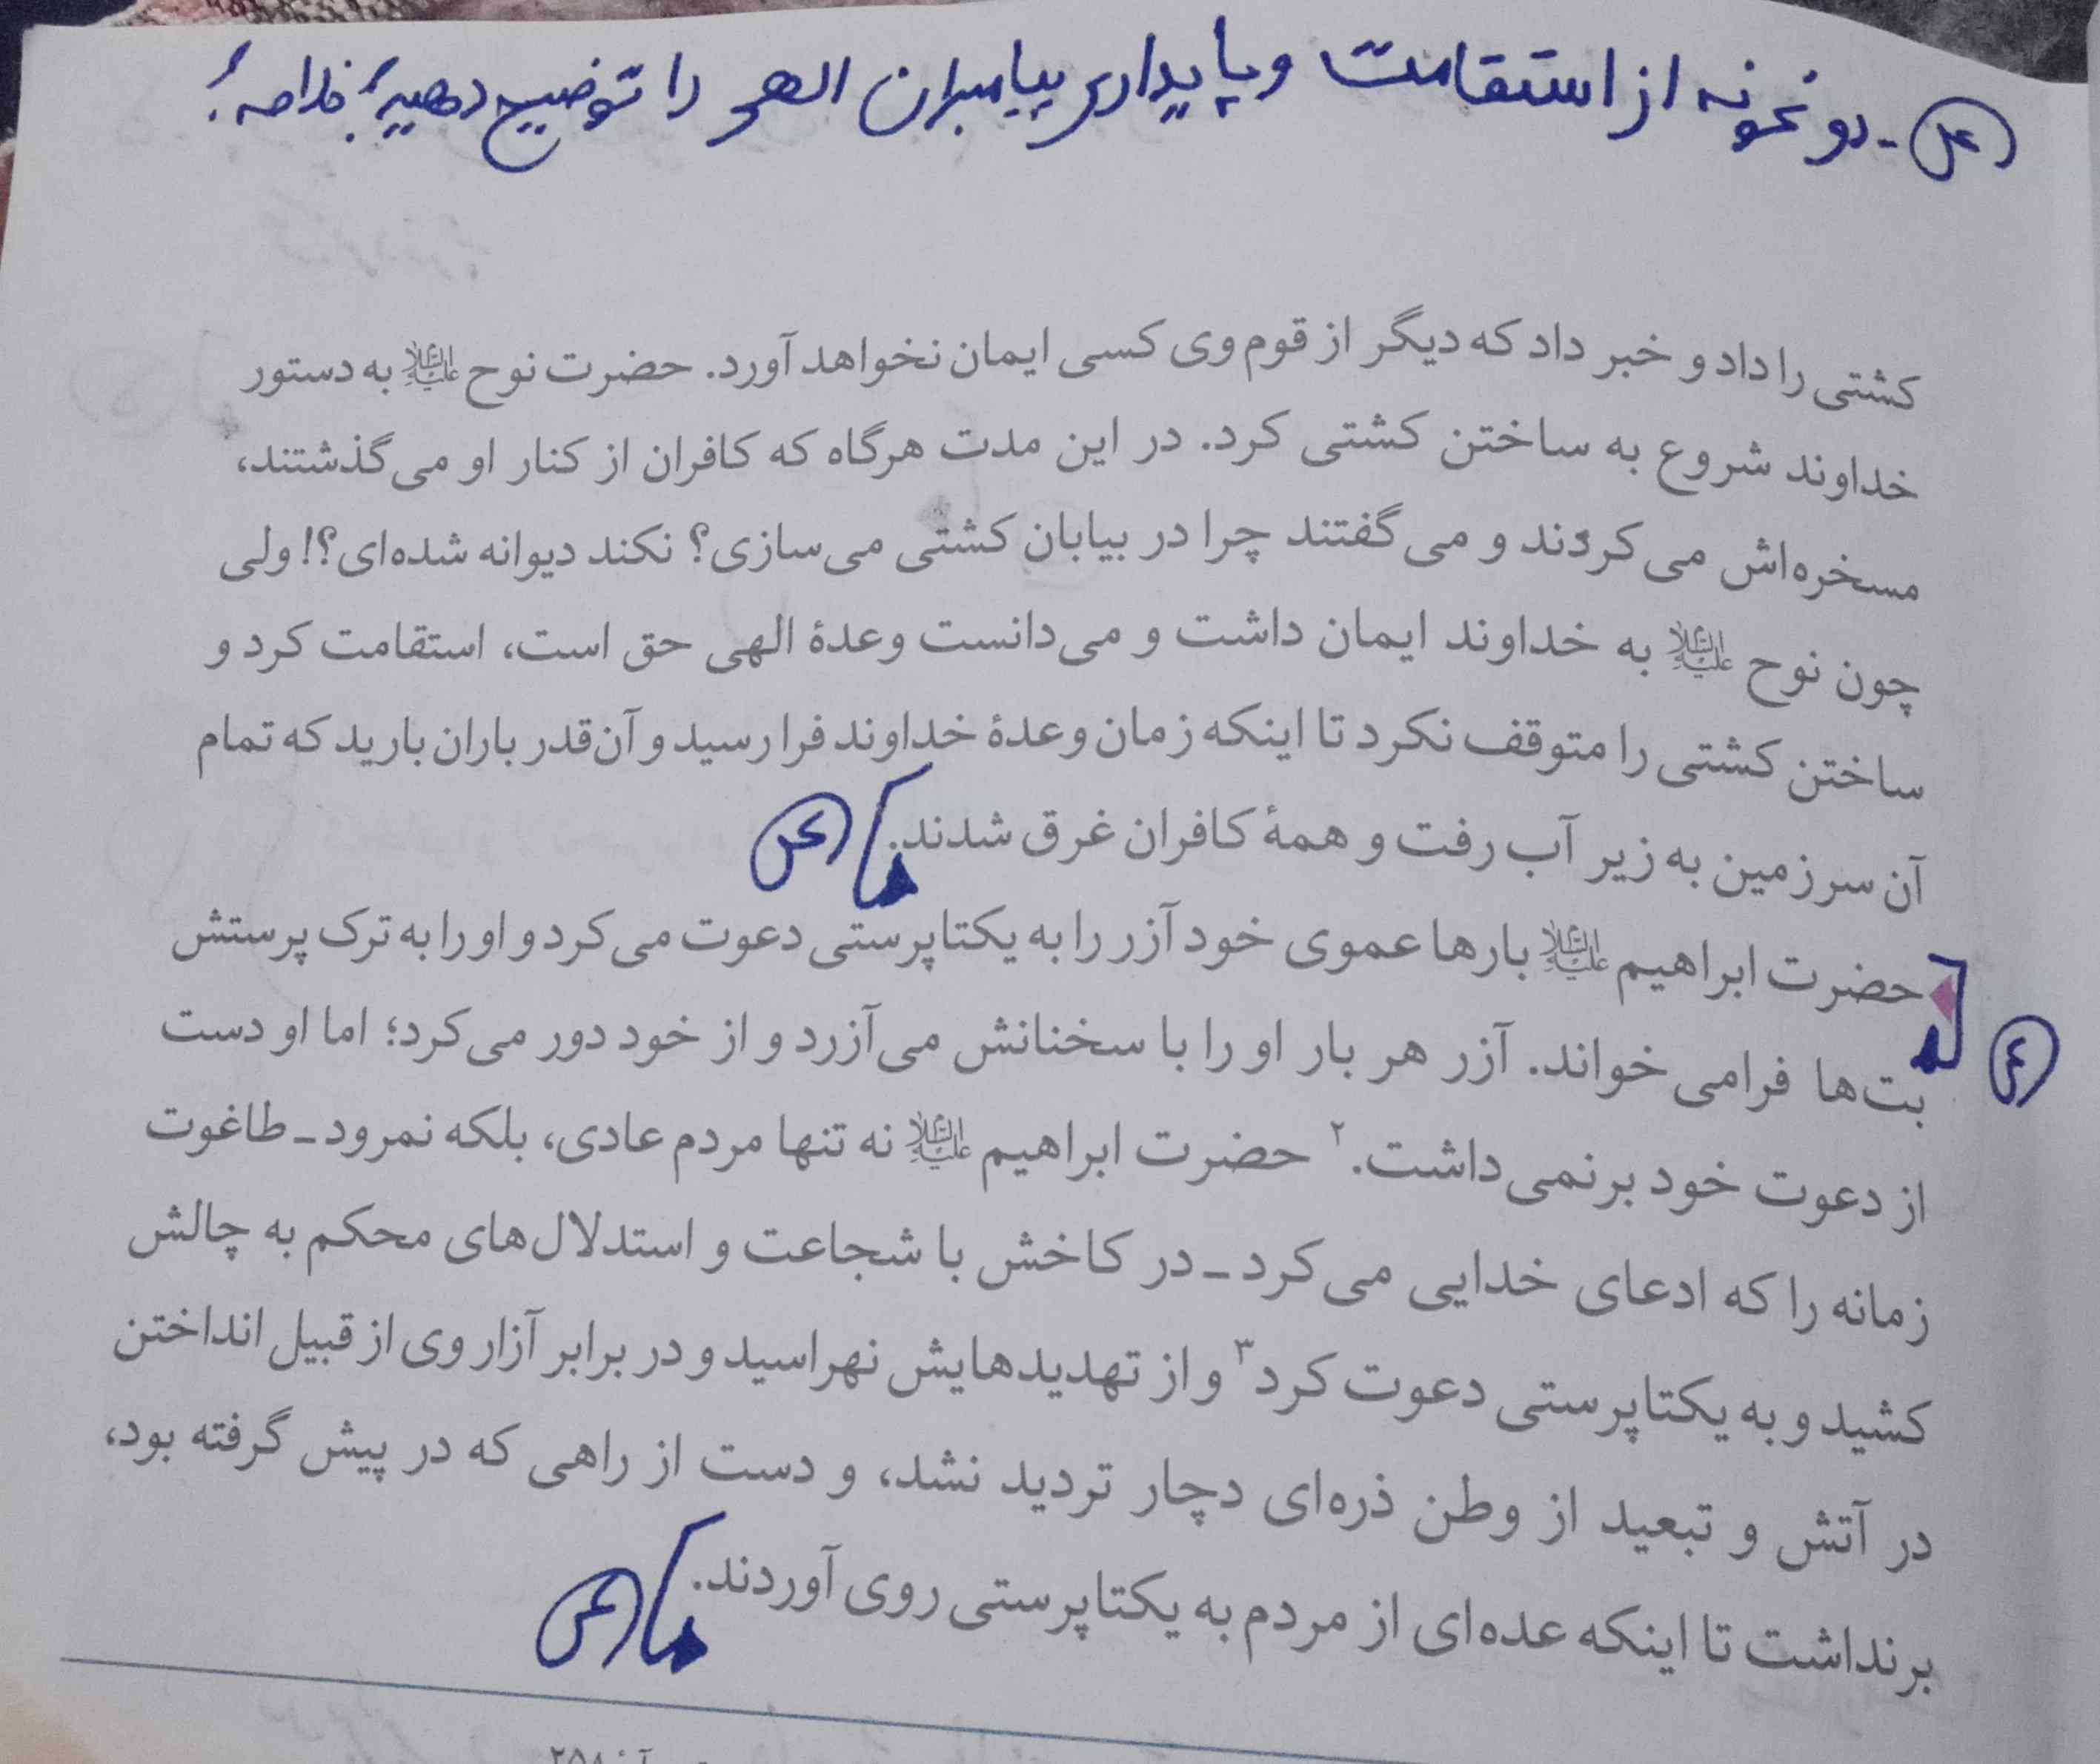 دو نمونه از استقامت و پایداری پیامبران الهی را توضیح دهید؟ خلاصه!
کشتی را داد و خبر داد که دیگر از قوم وی کسی ایمان نخواهد آورد. حضرت نوح علیه‌السلام به دستور
خداوند شروع به ساختن کشتی کرد. در این مدت هرگاه که کافران از کنار او می‌گذشتند،
مسخره‌اش می‌کردند و می‌گفتند چرا در بیابان کشتی می‌سازی؟ نکند دیوانه شده‌ای؟! ولی
چون نوح علیه‌السلام به خداوند ایمان داشت و می‌دانست وعدهٔ الهی حق است، استقامت کرد و
ساختن کشتی را متوقف نکرد تا اینکه زمان وعدهٔ خداوند فرا رسید و آن‌قدر باران بارید که تمام
آن سرزمین به زیر آب رفت و همهٔ کافران غرق شدند.
حضرت ابراهیم علیه‌السلام بارها عموی خود آزر را به یکتاپرستی دعوت می‌کرد و او را به ترک پرستش
بت‌ها فرامی خواند. آزر هر بار او را با سخنانش می‌آزرد و از خود دور می‌کرد؛ اما او دست
از دعوت خود برنمی‌داشت.۲ حضرت ابراهیم علیه‌السلام نه تنها مردم عادی، بلکه نمرود ـ طاغوت
زمانه را که ادعای خدایی می‌کرد ـ در کاخش با شجاعت و استدلال‌های محکم به چالش
کشید و به یکتاپرستی دعوت کرد۳ و از تهدیدهایش نهراسید و در برابر آزار وی از قبیل انداختن
در آتش و تبعید از وطن ذره‌ای دچار تردید نشد، و دست از راهی که در پیش گرفته بود،
برنداشت تا اینکه عده‌ای از مردم به یکتاپرستی روی آوردند.